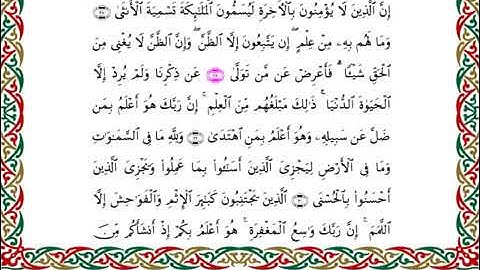 إِنَّ الَّذِينَ لَا يُؤْمِنُونَ بِالْآخِرَةِ لَيُسَمُّونَ الْمَلَائِكَةَ تَسْمِيَةَ الْأُنْثَىٰ ﴿٢٧﴾
وَمَا لَهُم بِهِ مِنْ عِلْمٍ ۖ إِن يَتَّبِعُونَ إِلَّا الظَّنَّ ۖ وَإِنَّ الظَّنَّ لَا يُغْنِي مِنَ
الْحَقِّ شَيْئًا ﴿٢٨﴾ فَأَعْرِضْ عَن مَّن تَوَلَّىٰ عَن ذِكْرِنَا وَلَمْ يُرِدْ إِلَّا
الْحَيَوٰةَ الدُّنْيَا ۚ ذَٰلِكَ مَبْلَغُهُم مِّنَ الْعِلْمِ ۚ إِنَّ رَبَّكَ هُوَ أَعْلَمُ بِمَن
ضَلَّ عَن سَبِيلِهِ وَهُوَ أَعْلَمُ بِمَنِ اهْتَدَىٰ ﴿٣٠﴾ وَلِلَّهِ مَا فِي السَّمَٰوَٰتِ
وَمَا فِي الْأَرْضِ لِيَجْزِيَ الَّذِينَ أَسَٰٓـُٔوا بِمَا عَمِلُوا وَيَجْزِيَ الَّذِينَ
أَحْسَنُوا بِالْحُسْنَى ﴿٣١﴾ الَّذِينَ يَجْتَنِبُونَ كَبَٰٓئِرَ الْإِثْمِ وَالْفَوَٰحِشَ إِلَّا
اللَّمَمَ ۚ إِنَّ رَبَّكَ وَٰسِعُ الْمَغْفِرَةِ ۚ هُوَ أَعْلَمُ بِكُمْ إِذْ أَنشَأَكُم مِّنَ